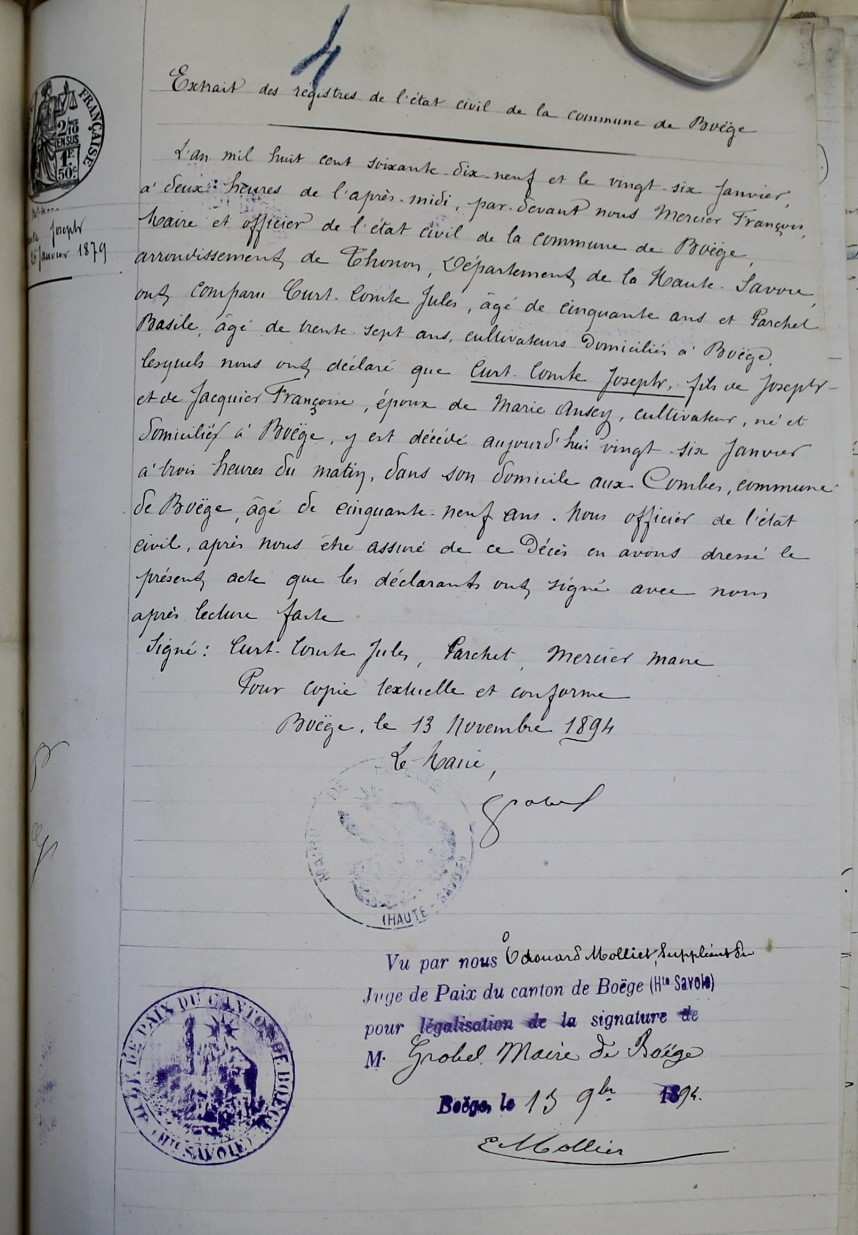 4
Extrait des registres de l'état civil de la commune de Boëge
FRANÇAISE
2/10
EN SUS
1F
50C
L'an mil huit cent soixante-dix-neuf et le vingt-six Janvier,
à deux heures de l'après-midi, par-devant nous Mercier François,
Maire et officier de l'état civil de la commune de Boëge,
Joseph
Janvier 1879
arrondissement de Thonon, Département de la Haute-Savoie,
ont comparu Curt-Comte Jules, âgé de cinquante ans et Parchet
Basile, âgé de trente-sept ans, cultivateurs domiciliés à Boëge,
lesquels nous ont déclaré que Curt-Comte Joseph, fils de Joseph
et de Jacquier Françoise, époux de Marie Ansey, cultivateur, né et
domicilié à Boëge, y est décédé aujourd'hui vingt-six Janvier
à trois heures du matin, dans son domicile aux Combes, commune
de Boëge, âgé de cinquante-neuf ans. Nous officier de l'état
civil, après nous être assuré de ce Décès en avons dressé le
présent acte que les déclarants ont signé avec nous
après lecture faite
Signé: Curt-Comte Jules, Parchet, Mercier maire
Pour copie textuelle et conforme
Boëge, le 13 Novembre 1894
Le Maire,
Grobel
(HAUTE-SAVOIE)
Vu par nous Edouard Mollier, Suppléant du
Juge de Paix du canton de Boëge (Hte Savoie)
pour légalisation de la signature de
M. Grobel Maire de Boëge
Boëge, le 13 9bre 1894.
E Mollier
DE PAIX DU CANTON DE BOËGE
(Hte SAVOIE)